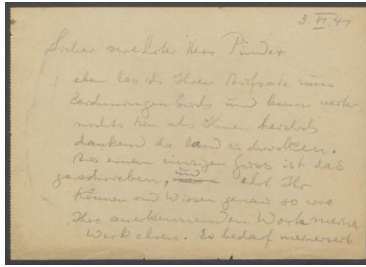 3. VI. 41
Lieber verehrter Herr Pinder
eben las ich Ihren Aufsatz zum
und kann weiter
nichts tun als Ihnen herzlich
dankend die Hand zu drücken.
Aus einem einzigen Guss ist das
geschrieben, und ehrt Ihr
Können und Wissen genau so wie
Ihre anerkennenden Worte meine
Werk ehren. Es bedarf meinerseits